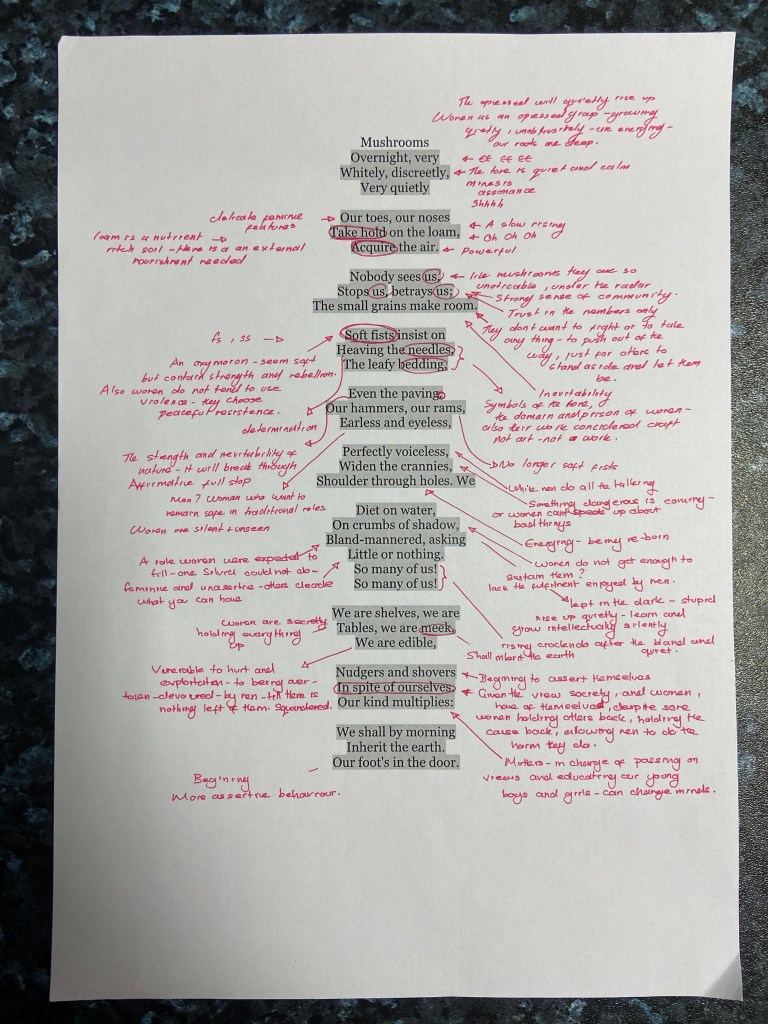 The opressed will quietly rise up
Women as an opressed group - growing
quietly, unobtrusively - are energing -
our roots are deep.
Mushrooms
Overnight, very
← EE EE EE EE
Whitely, discreetly,
← The tone is quiet and calm
Very quietly
mimesis
assonance
Shhhh
delicate feminine →
features
Our toes, our noses
loam is a nutrient →
ritch soil - there is a an external
nourishment needed
Take hold on the loam,
← A slow rising
← Oh Oh Oh
Acquire the air.
← Powerful
Nobody sees us,
← like mushrooms they are so
unoticable, under the radar
Stops us, betrays us;
Strong sense of community.
The small grains make room.
Trust in the numbers only
They dont want to fight or to take
any thing - to push out of the
way, just for others to
stand aside and let them
be.
fs, ss →
Soft fists insist on
An oxymoron - seem soft
but contain strength and rebellion.
Also women do not tend to use
violence - they choose
peaceful resistence.
Heaving the needles,
The leafy bedding,
Inevitability
Symbols of the home, of
the domain and prison of women -
also their work concidered craft
not art - not a work.
determination
Even the paving.
Our hammers, our rams,
Earless and eyeless,
The strength and inevitability of
nature - it will break through
Affirmative full stop
No longer soft fists
Perfectly voiceless,
Widen the crannies,
Shoulder through holes. We
While men do all the talking
Something dangerous is coming -
or women cant speak up about
bad things
Men? Woman who want to
remain safe in traditional roles
Women are silent + unseen
Energing - being re-born
Diet on water,
On crumbs of shadow,
Bland-mannered, asking
Little or nothing.
So many of us!
So many of us!
A role women were expected to
fill - one Silvia could not do -
feminine and unasertive - others
what you can have
women do not get enough to
sustain them?
lack the fulfilment enjoyed by men.
kept in the dark - stupid
rise up quietly - learn and
grow intellectually silently
rising creclendo after the bland and
quiet.
women are secretly
holding everything
up
We are shelves, we are
Tables, we are meek,
We are edible,
Shall inherit the earth
Vunerable to hurt and
exploitation - to being over -
taken - devoured - by men - till there is
nothing left of them. Squandered.
Nudgers and shovers
← Beginning to assert themselves
In spite of ourselves.
Our kind multiplies:
← Given the view society, and women,
have of themselves, despite some
women holding others back, holding the
cause back, allowing men to do the
harm they do.
We shall by morning
Inherit the earth.
Our foot's in the door.
Mothers - in charge of passing on
views and educating our young
boys and girls - can change minds.
Begining
More assertive behaviour.